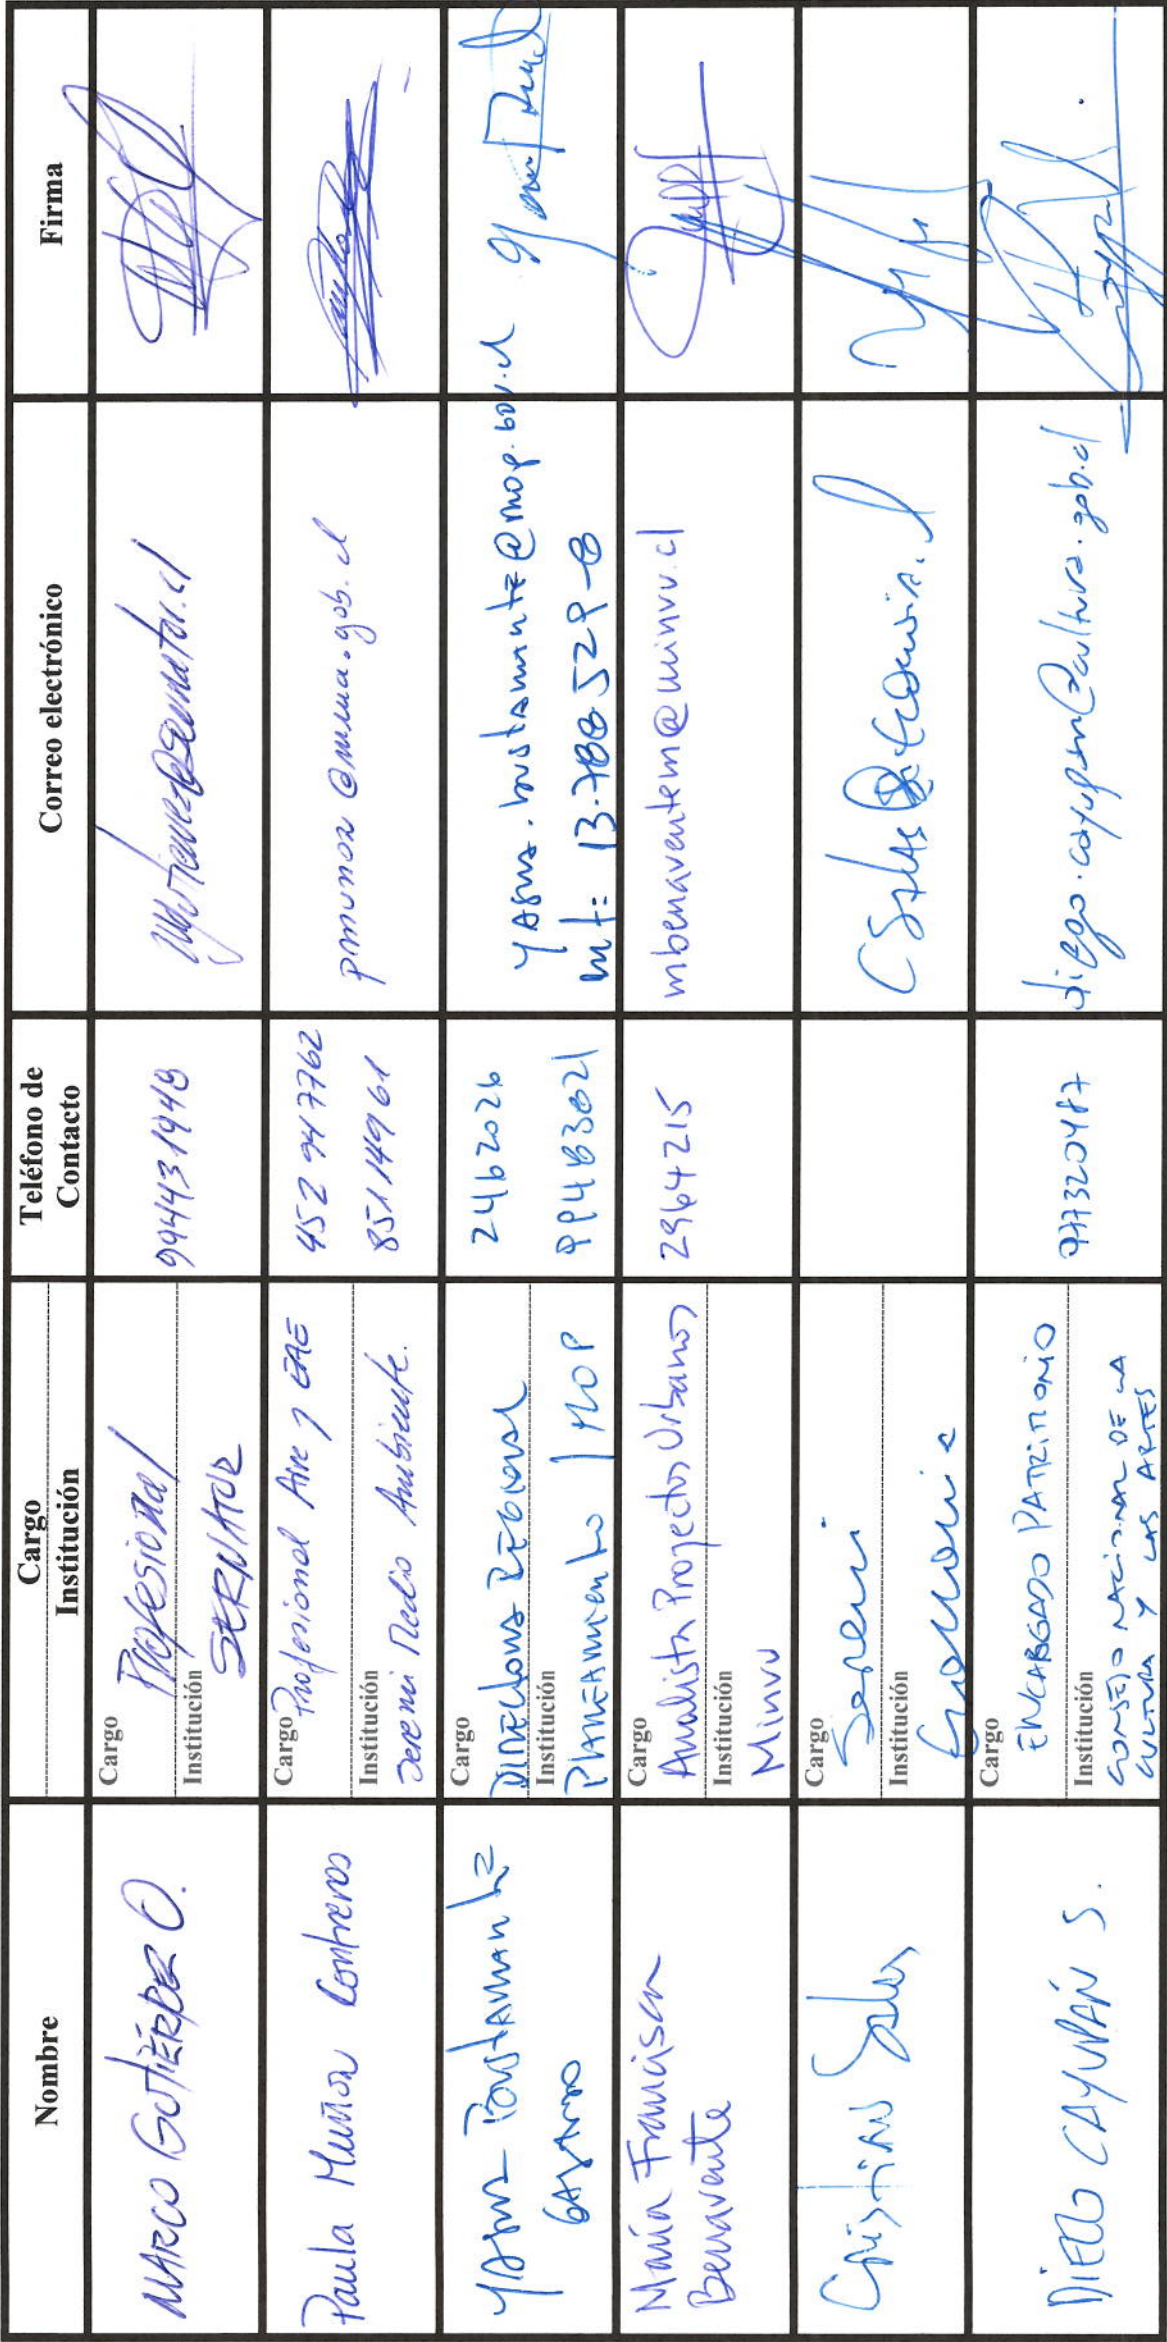 Nombre
Cargo
Institución
Teléfono de
Contacto
Correo electrónico
Firma
MARCO GUTIÉRREZ O.
Cargo
Profesional
Institución
SERNATUR
994431948
mgutierrez@sernatur.cl
Paula Muñoz Contreras
Cargo
Profesional Aire y EAE
Institución
Seremi Medio Ambiente.
452 947762
85114961
pmunoz@mma.gob.cl
YASNA BUSTAMANTE
Cargo
DIRECTORA REGIONAL
Institución
PLANEAMIENTO / MOP
2462026
99463021
YASNA.bustamante@mop.gov.cl
13.788529-8
María Francisca
Benavente
Cargo
Analista Proyectos Urbanos
Institución
Minvu
2964215
mbenaventem@minvu.cl
Cristian Salas
Cargo
Seremi
Institución
Economía
DIEGO CAYUPÁN S.
Cargo
ENCARGADO PATRIMONIO
Institución
CONSEJO NACIONAL DE LA
CULTURA Y LAS ARTES
977320487
diego.cayupan@cultura.gob.cl